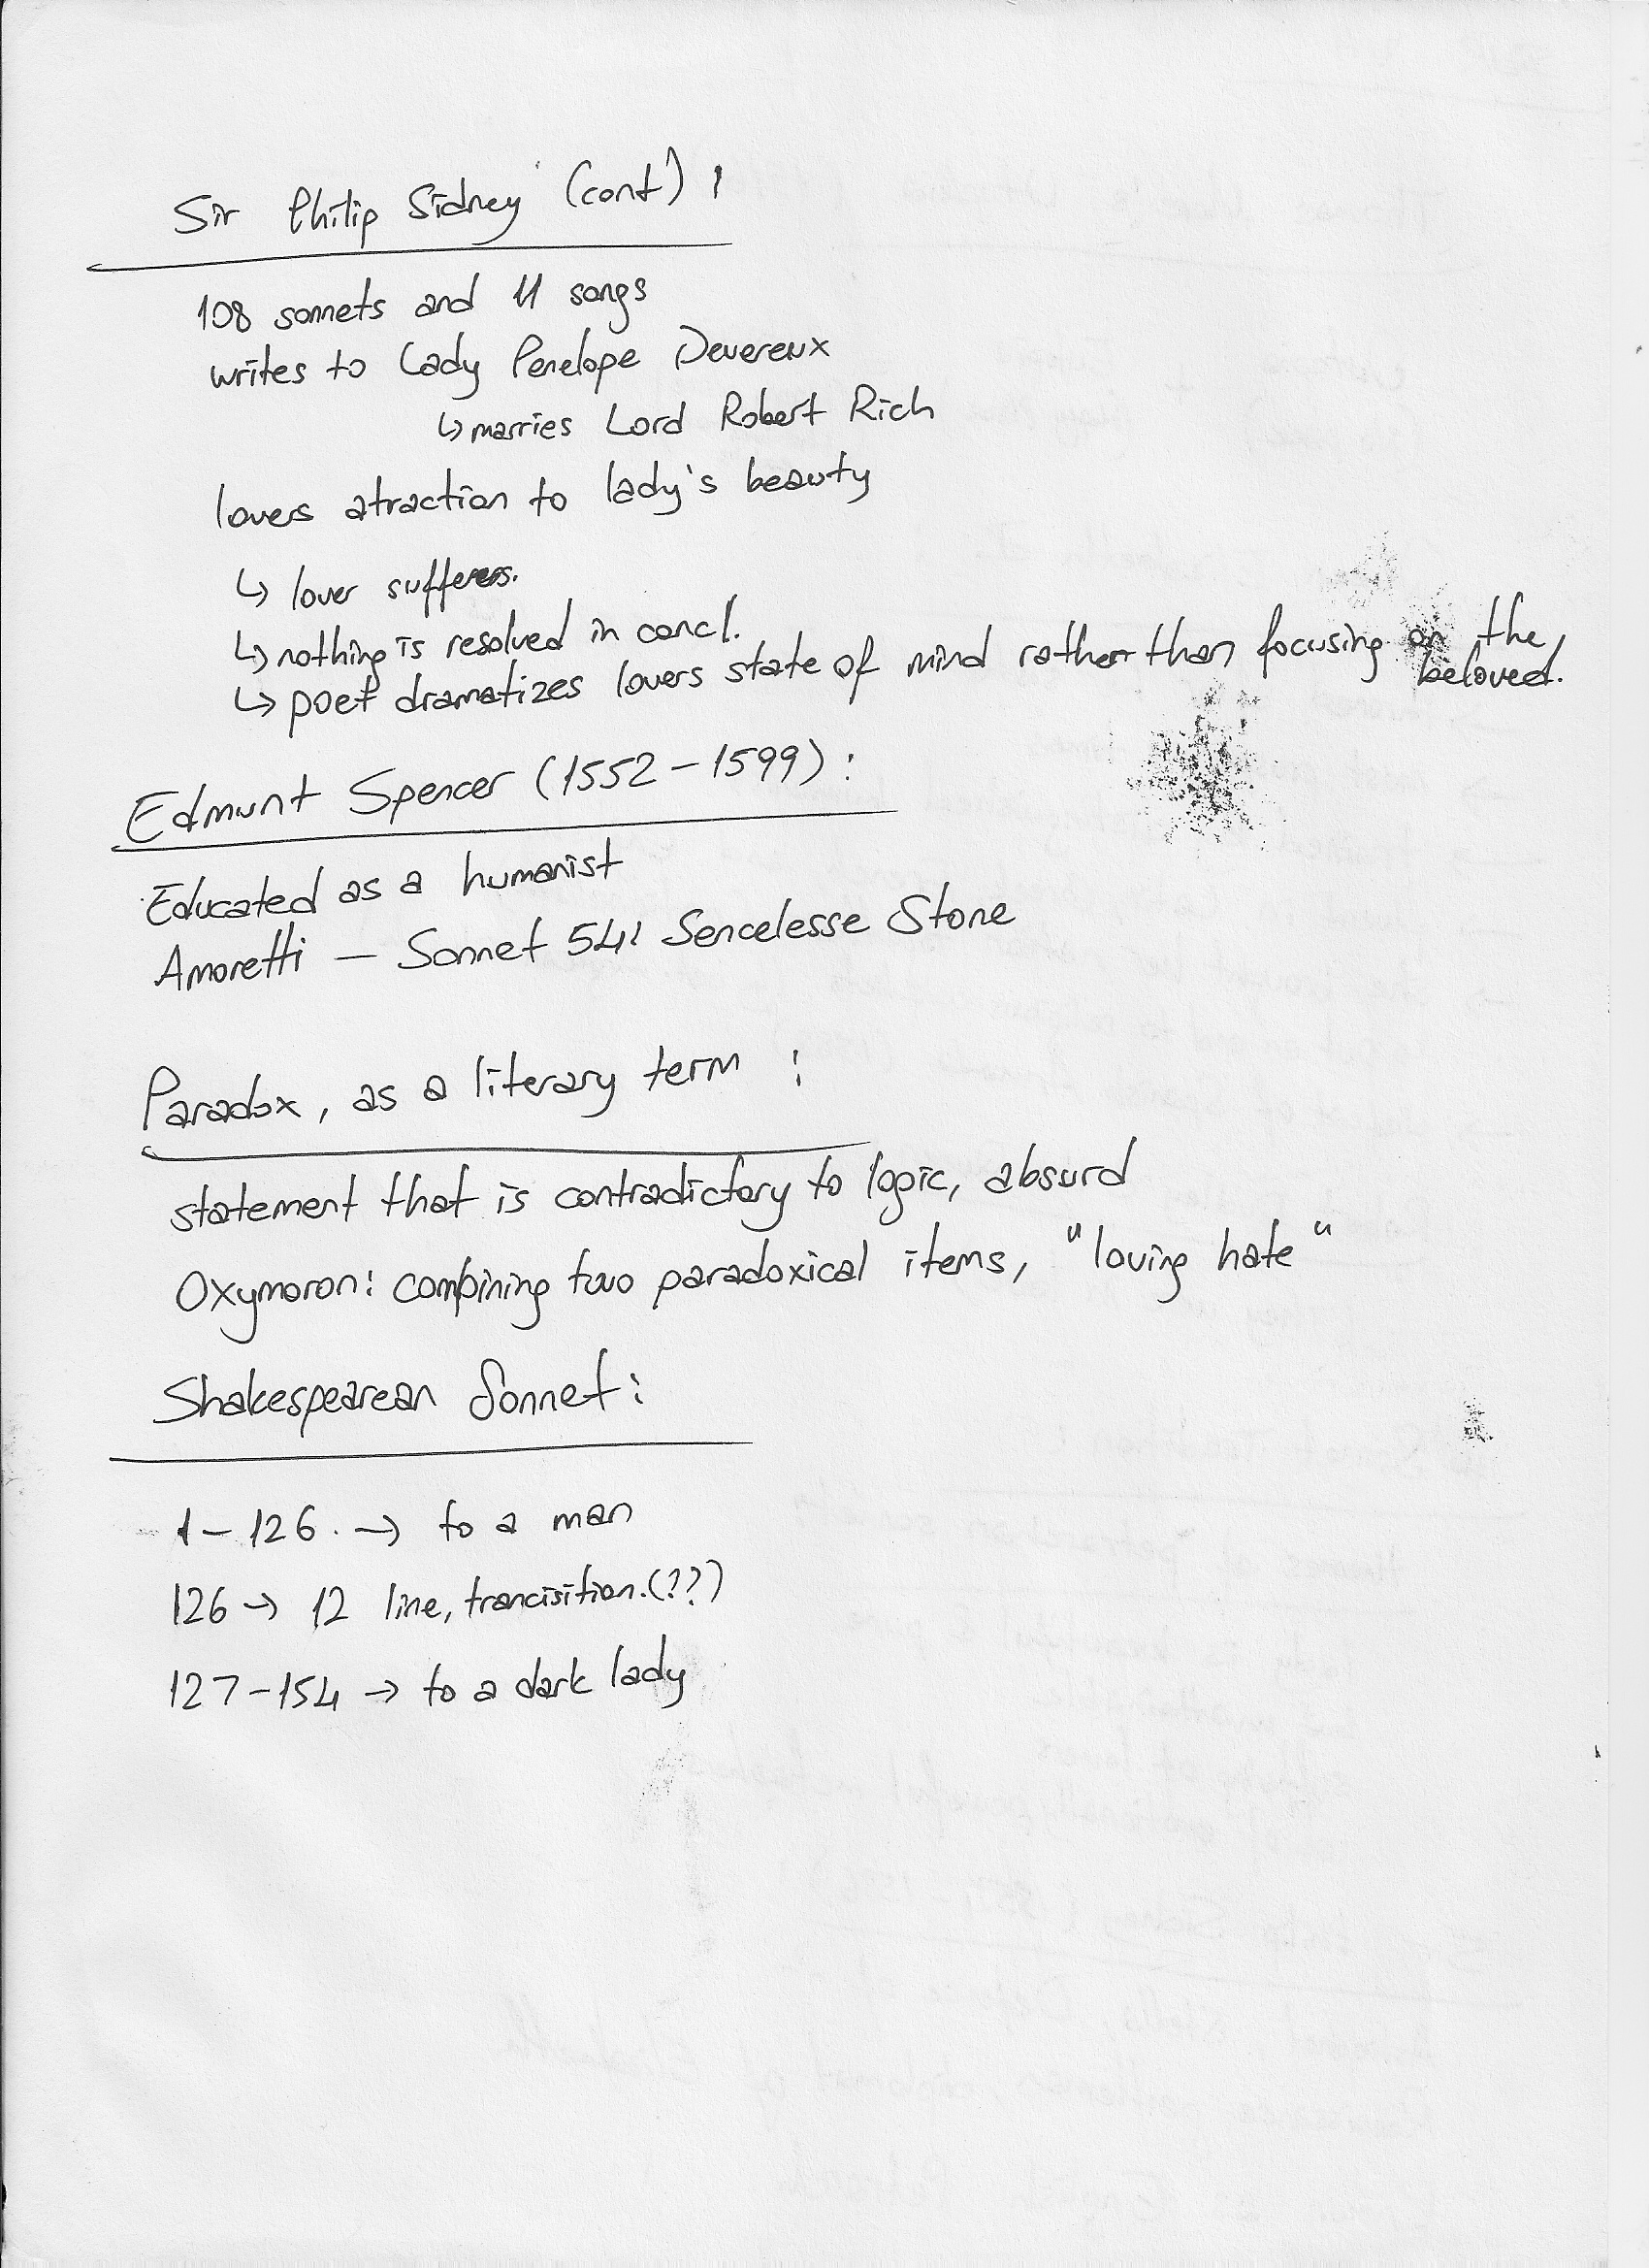 Sir Philip Sidney (cont) :
108 sonnets and 11 songs
writes to Lady Penelope Devereux
↳ marries Lord Robert Rich
lovers atraction to lady's beauty
↳ lover sufferers.
↳ nothing is resolved in concl.
↳ poet dramatizes lovers state of mind rather than focusing on the beloved.
Edmunt Spencer (1552-1599) :
Educated as a humanist
Amoretti — Sonnet 54: Sencelesse Stone
Paradox, as a literary term :
statement that is contradictory to logic, absurd
Oxymoron: combining two paradoxical items, "loving hate"
Shakespearean Sonnet:
1-126. → to a man
126 → 12 line, trancisition.(??)
127-154 → to a dark lady